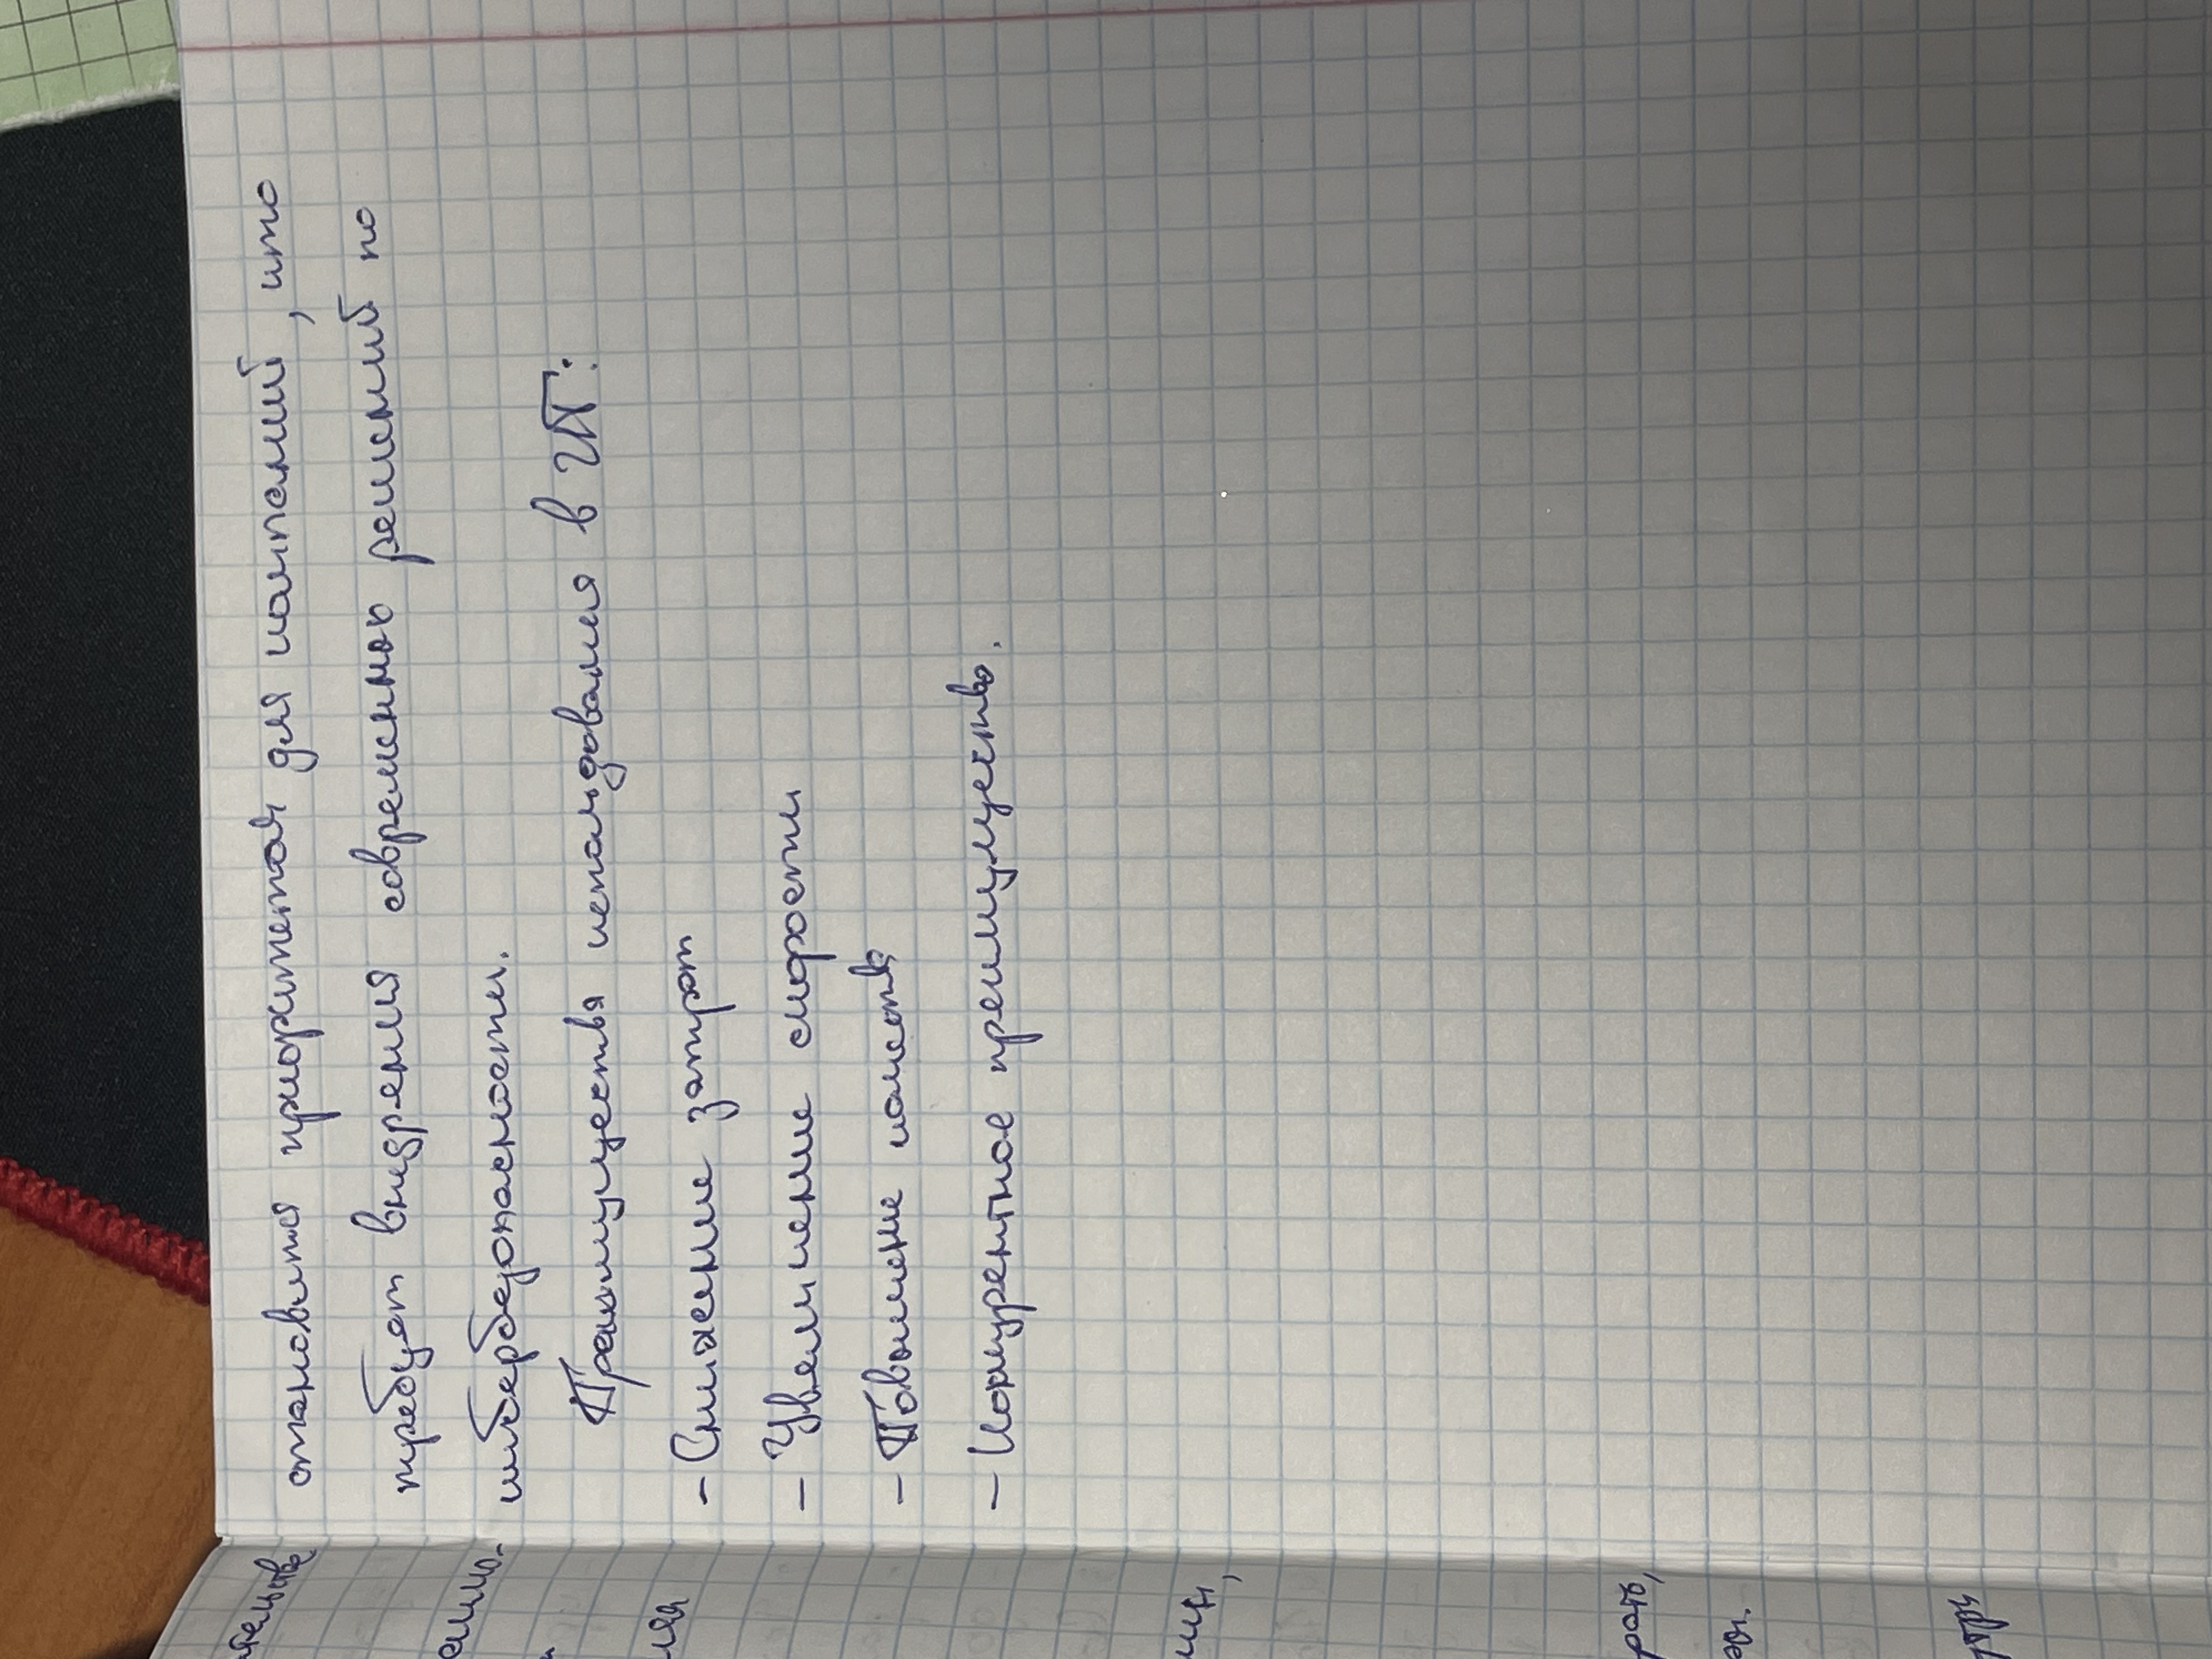 становится приоритетом для компаний, что
требует внедрения современных решений по
кибербезопасности.
Преимущества использования в ИТ:
- Снижение затрат
- Увеличение скорости
- Повышение качеств
- Конкурентное преимущество.